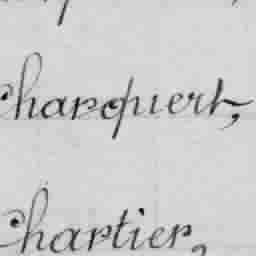 Charquert,
Chartier,